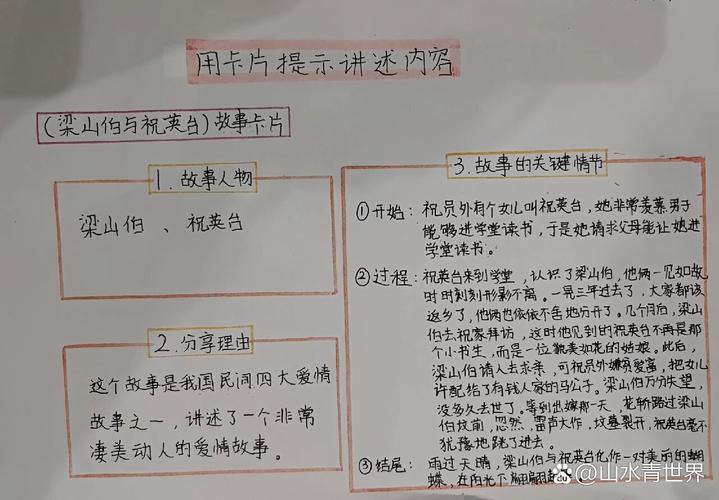 用卡片提示讲述内容
(梁山伯与祝英台)故事卡片
1.故事人物
梁山伯、祝英台
2.分享理由
这个故事是我国民间四大爱情
故事之一，讲述了一个非常
凄美动人的爱情故事。
3.故事的关键情节
①开始：祝员外有个女儿叫祝英台，她非常羡慕男子
能够进学堂读书，于是她请求父母能让她进
学堂读书。
②过程：祝英台来到学堂，认识了梁山伯，他俩一见如故
时时刻刻形影不离。一晃三年过去了，大家都该
返乡了，他俩也依依不舍地分开了。几个月后，梁山
伯去祝家拜访，这时他见到的祝英台不再是那
个小书生，而是一位貌美如花的姑娘。此后，
梁山伯请人去求亲，可祝员外嫌贫爱富，把女儿
许配给了有钱人家的马公子。梁山伯万分失望，
没多久去世了。等到出嫁那一天，花轿路过梁山
伯坟前，忽然，雷声大作，坟墓裂开，祝英台毫不
犹豫地跳了进去。
③结尾：雨过天晴，梁山伯与祝英台化作一对美丽的蝴
蝶，在阳光下翩翩
山水青世界